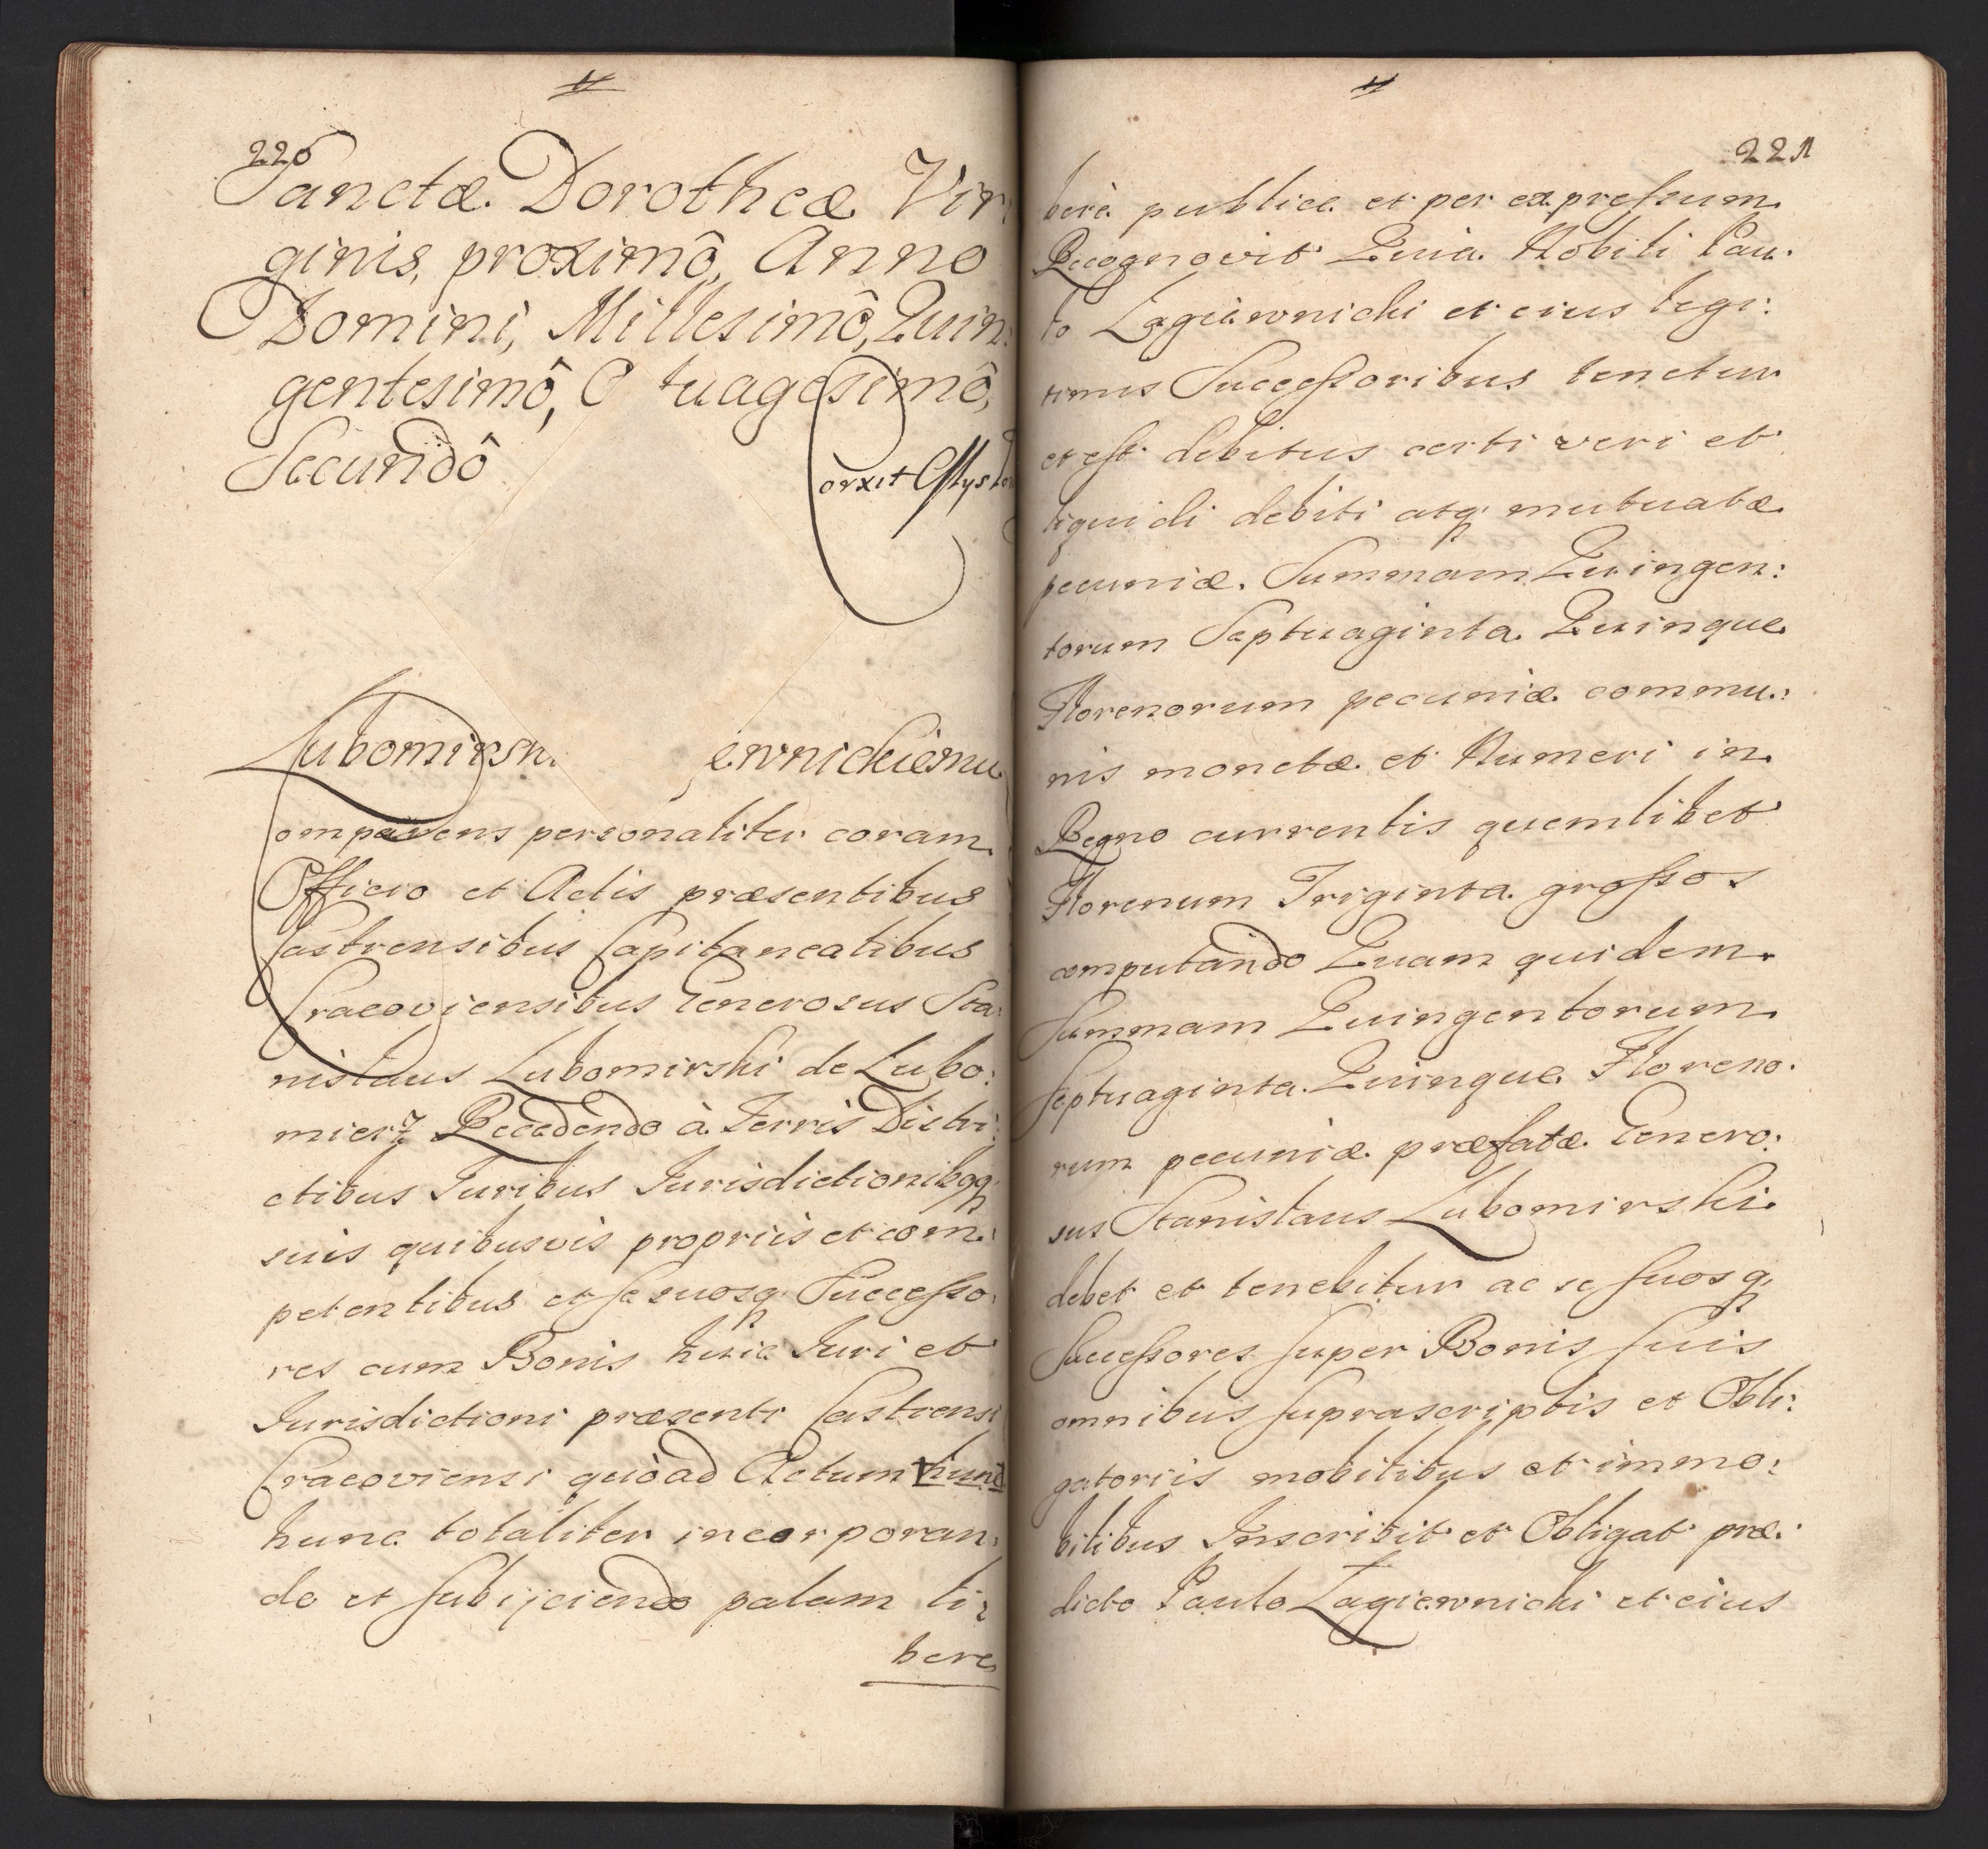 220
Sanctæ Dorotheæ Vir:
ginis, proximô, Anno
Domini, Millesimô, Quin:
gentesimô, O tuagesimô,
Secundô
orxit
Lubomirsk ewnickiemu
Comparens personaliter coram
Officio et Actis præsentibus
Castrensibus Capitaneatibus
Cracoviensibus Generosus Sta:
nislaus Lubomirski de Lubo:
mierz Recedendo à Terris Distri:
ctibus Juribus Jurisdictionibqq
suis quibusvis propriis et com:
petentibus et se suosq Successo:
res cum Bonis huic Juri et
Jurisdictioni præsenti Castrensi
Cracoviensi quòad Actum hunc
hunc totaliter incorporan:
do et subijciendo palam li:
bere
221
berè publice et per expressum
Recognovit Quia Nobili Pau:
lo Lagiewnicki et eius legi:
timis Successoribus tenetur
et est debitus certi veri et
liquidi debiti atq mutuatæ
pecuniæ Summam Quingen:
torum Septuaginta Quinque
Florenorum pecuniæ commu:
nis monetæ et Numeri in
Regno currentis quemlibet
Florenum Triginta grossos
computando Quam quidem
Summam Quingentorum
Septuaginta Quinque Floreno:
rum pecuniæ præfatæ Genero:
sus Stanislaus Lubomirski
debet et tenebitur ac se suosq
Successores super Bonis suis
omnibus suprascriptis et Obli:
gatoriis mobilibus et immo:
bilibus Inscribit et Obligat præ:
dicto Paulo Lagiewnicki et eius